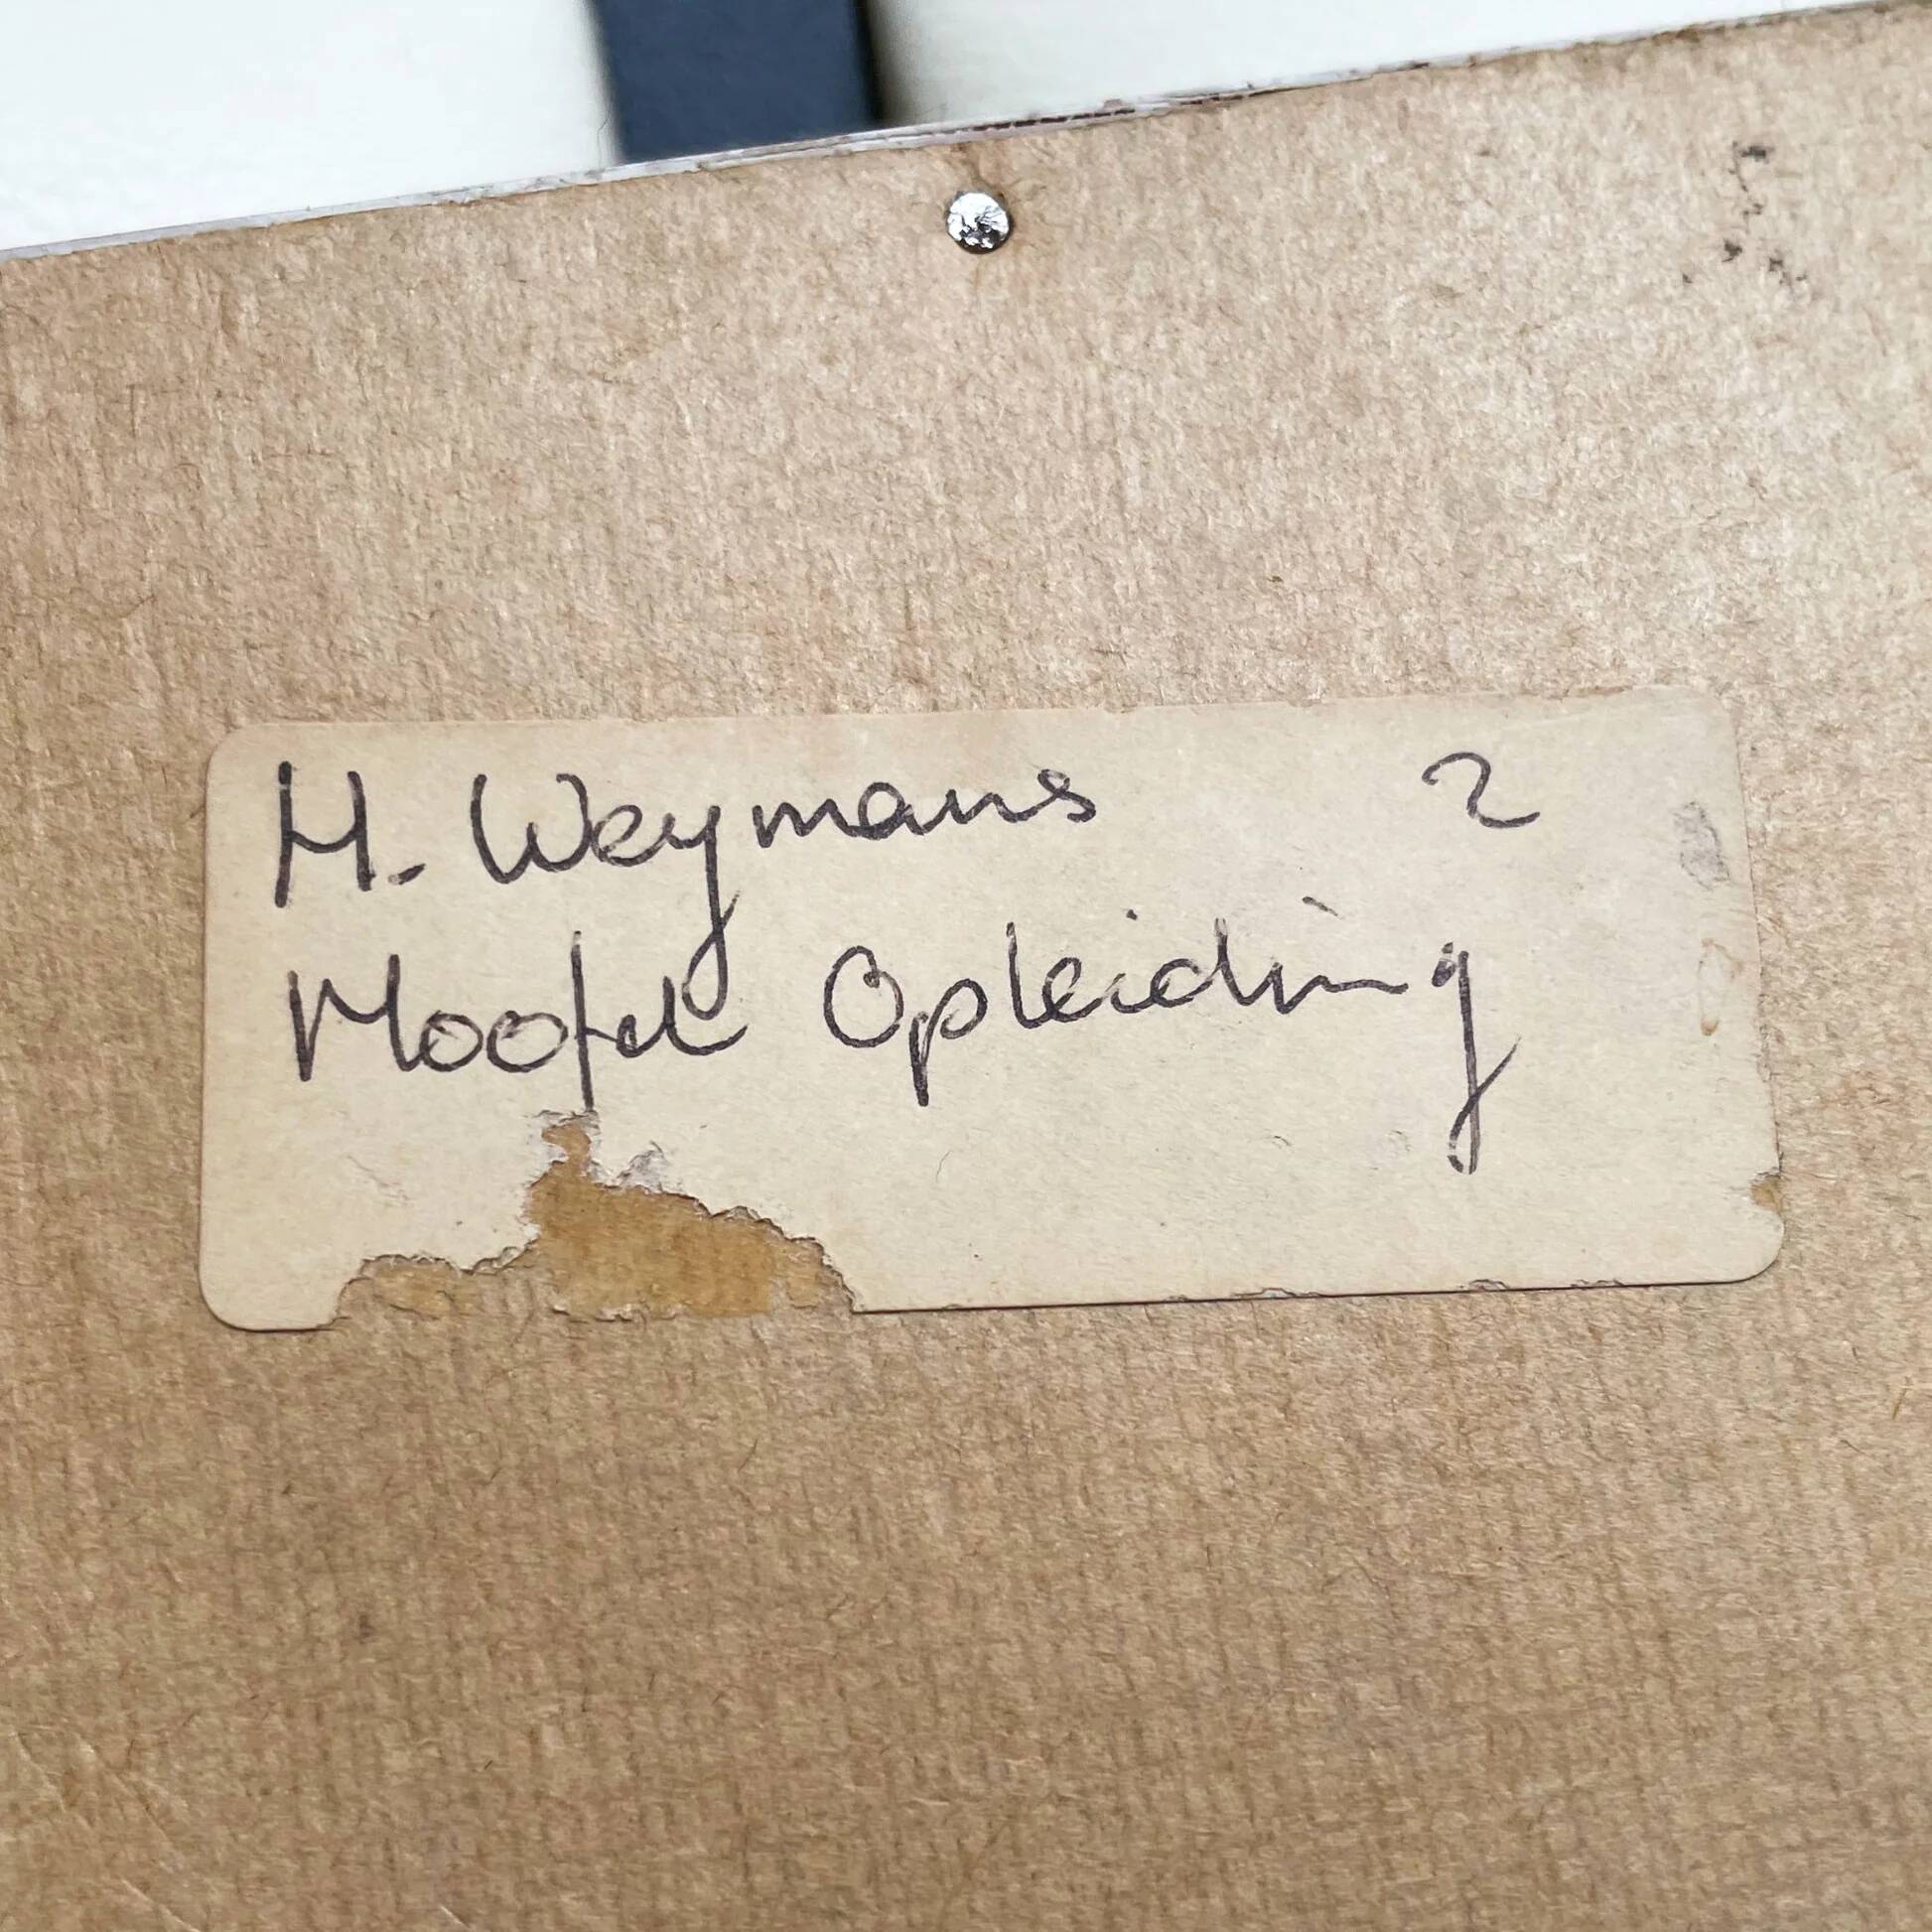 H. Weymans 2
Hoofd Opleiding